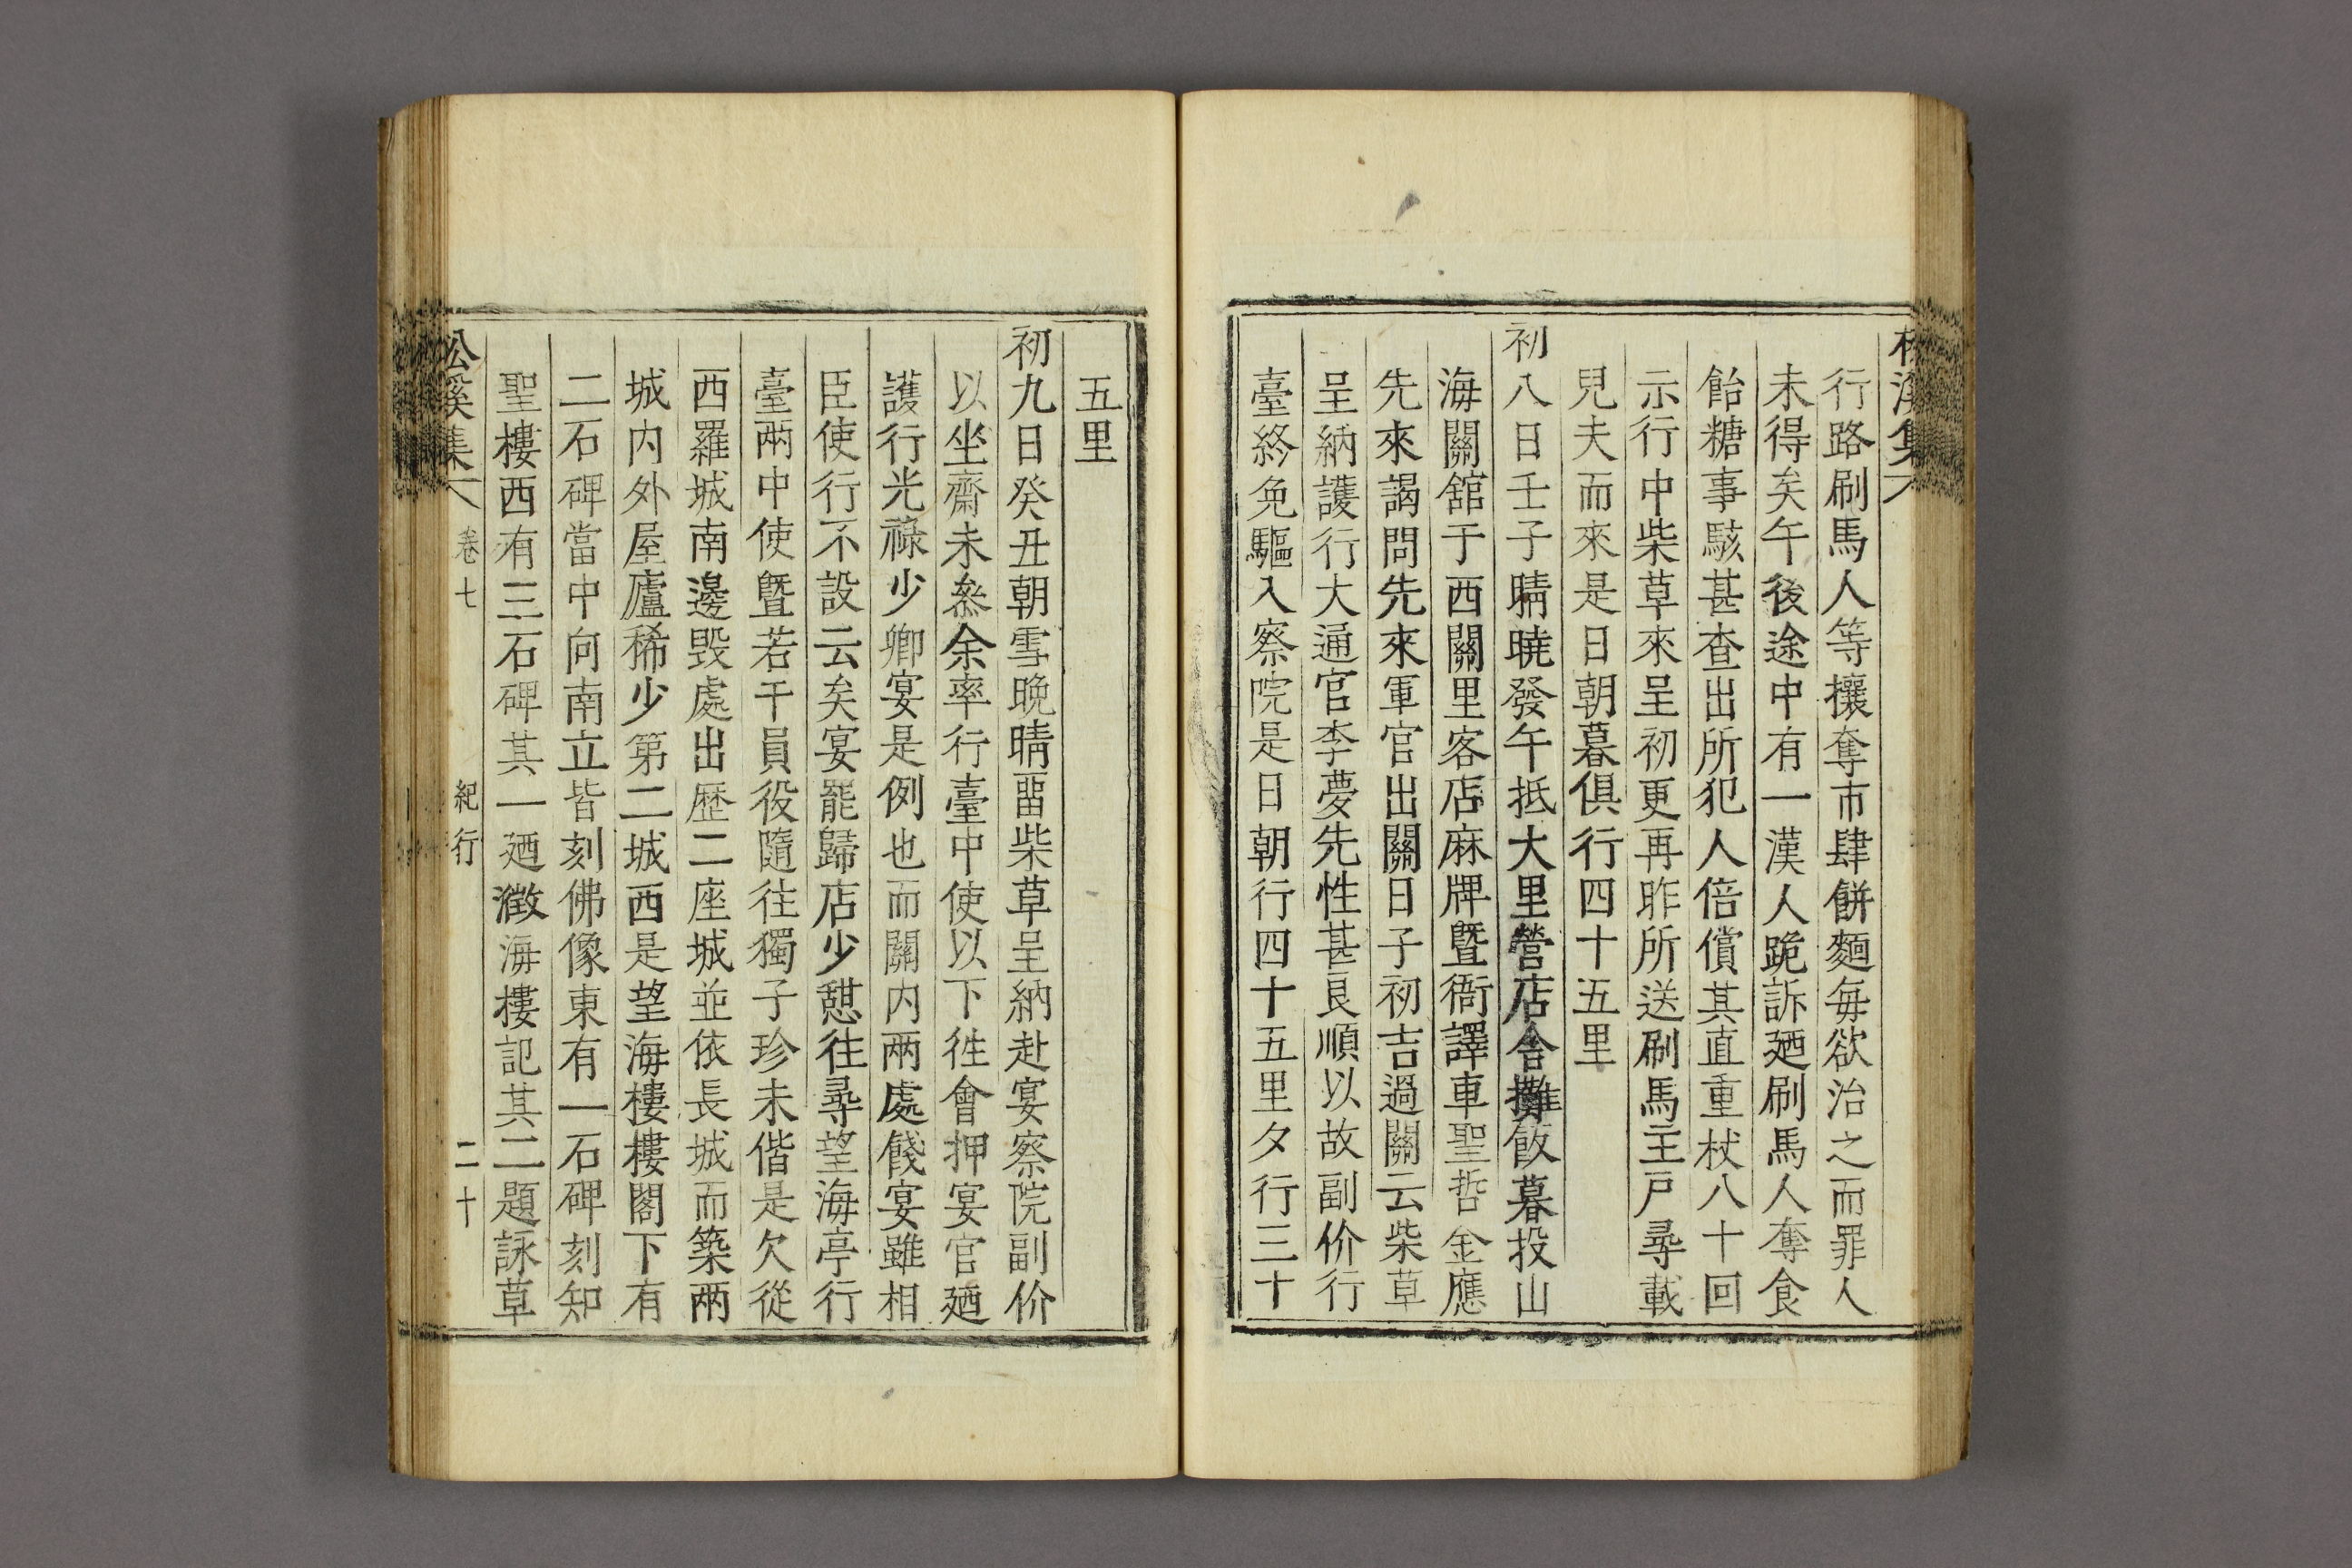 行路刷馬人等攘奪市肆餅麵每欲治之而罪人
未得矣午後途中有一漢人跪訴廼刷馬人奪食
飴糖事駭甚查出所犯人倍償其直重杖八十回
示行中柴草來呈初更再昨所送刷馬主戶尋載
兒夫而來是日朝暮俱行四十五里
初八日壬子晴曉發午抵大里營店舍攤飯暮投山
海關舘于西關里客店麻牌曁衙譯車聖哲金應
先來謁問先來軍官出關日子初吉過關云柴草
呈納護行大通官李夢先性甚良順以故副价行
臺終免驅入察院是日朝行四十五里夕行三十
五里
初九日癸丑朝雪晚晴畱柴草呈納赴宴察院副价
以坐齋未叅余率行臺中使以下徃會押宴官廼
護行光祿少卿宴是例也而關内兩處餞宴雖相
臣使行不設云矣宴罷歸店少憇往尋望海亭行
臺兩中使曁若干員役隨往獨子珍未偕是欠從
西羅城南邊毀處出歷二座城並依長城而築兩
城内外屋廬稀少第二城西是望海樓樓閣下有
二石碑當中向南立皆刻佛像東有一石碑刻知
聖樓西有三石碑其一廼澂海樓記其二題詠草
松溪集 卷七 紀行 二十